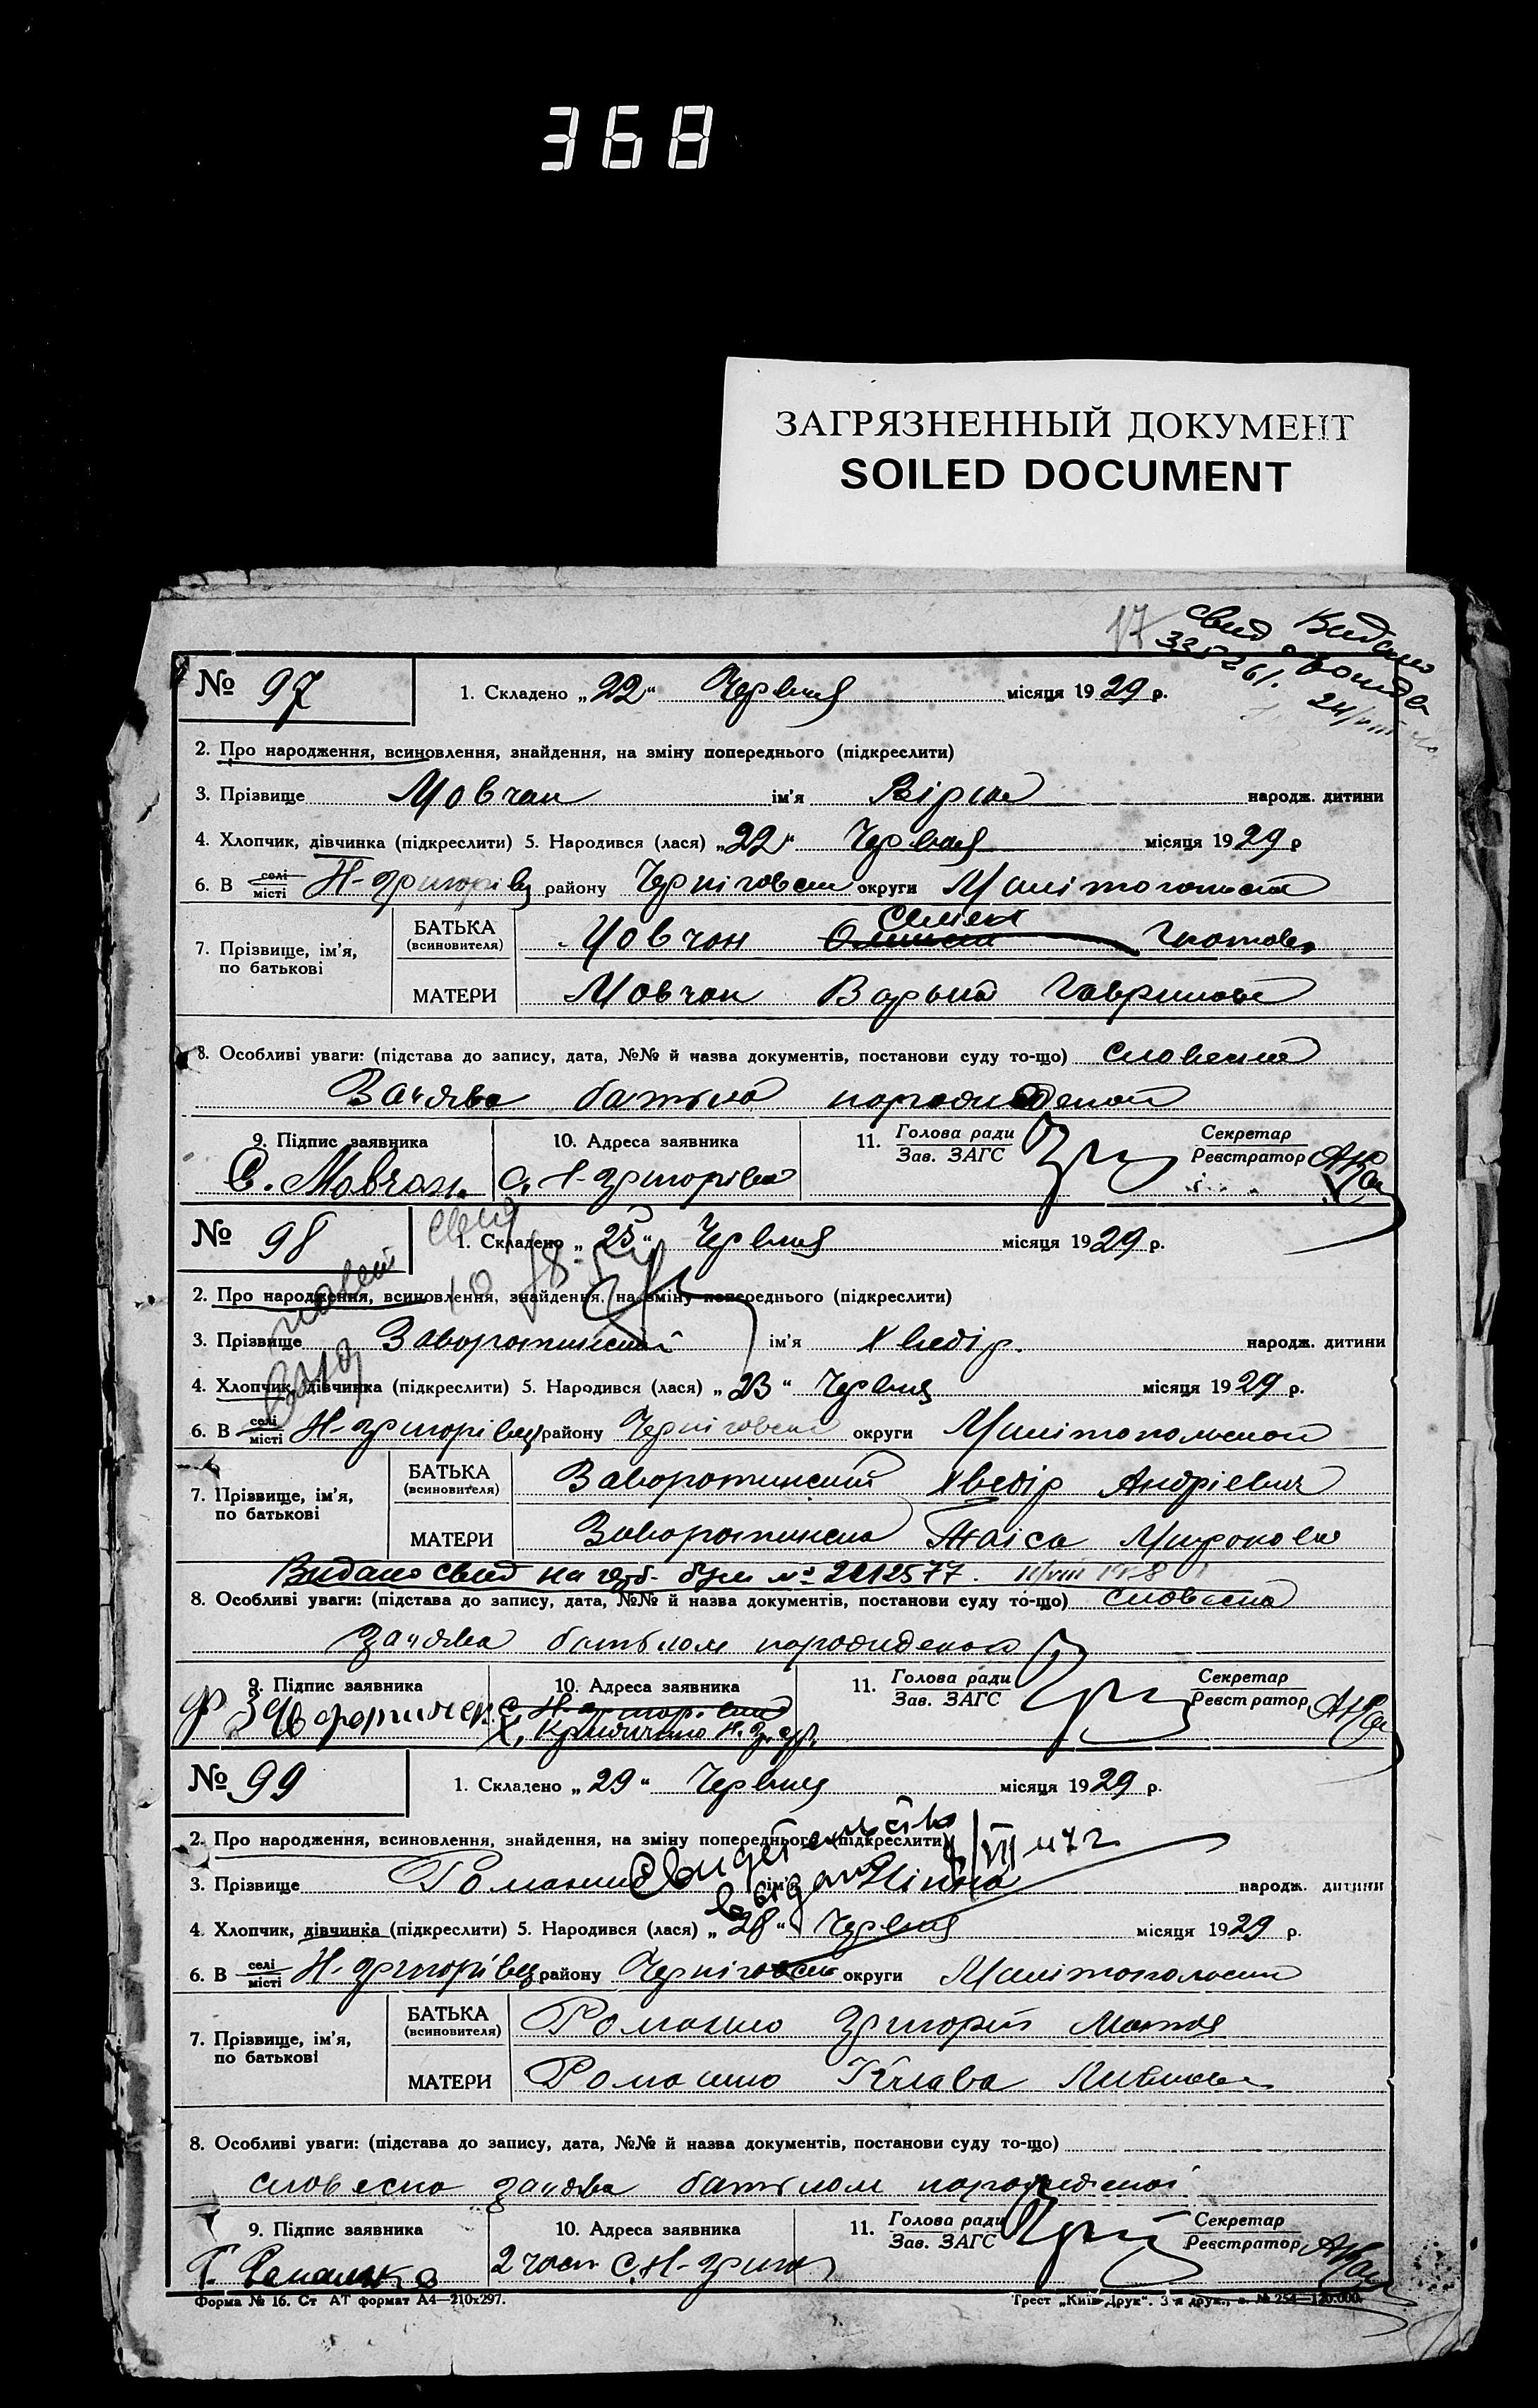 368
ЗАГРЯЗНЕННЫЙ ДОКУМЕНТ
SOILED DOCUMENT
17 свид Видано
335261. 24/VIII
№ 97 1. Складено „22“ Червня місяця 1929 р.
2. Про народження, всиновлення, знайдення, на зміну попереднього (підкреслити)
3. Прізвище Мовчан ім'я Віра народж. дитини
4. Хлопчик, дівчинка (підкреслити) 5. Народився (лася) „22“ Червня місяця 1929 р
6. В селі місті Н-Григорівц району Черніговськ округи
7. Прізвище, ім'я, по батькові
БАТЬКА (всиновителя) Мовчан Семен
МАТЕРИ Мовчан Варька Гаврилова
8. Особливі уваги: (підстава до запису, дата, №№ й назва документів, постанови суду то-що) словесна
Заявва батька народженой
9. Підпис заявника 10. Адреса заявника 11. Голова ради Зав. ЗАГС Секретар Реєстратор
С. Мовчан. С. Н-Григорівка
№ 98 1. Складено „25“ Червня місяця 1929 р.
2. Про народження, всиновлення, знайдення, на зміну попереднього (підкреслити)
3. Прізвище Заворотинский ім'я Хведір. народж. дитини
4. Хлопчик, дівчинка (підкреслити) 5. Народився (лася) „23“ Червня місяця 1929 р.
6. В селі місті Н-Григорівц району Черніговськ округи Мелітопольской
7. Прізвище, ім'я, по батькові
БАТЬКА (всиновителя) Заворотинский Хведір Андрієвич
МАТЕРИ Заворотинська Таіса Миронова
Видано свид на герб. бум № 2012577. 11/VIII
8. Особливі уваги: (підстава до запису, дата, №№ й назва документів, постанови суду то-що) словесна
заявва батьком народженой
9. Підпис заявника 10. Адреса заявника 11. Голова ради Зав. ЗАГС Секретар Реєстратор
№ 99 1. Складено „29“ Червня місяця 1929 р.
2. Про народження, всиновлення, знайдення, на зміну попереднього (підкреслити)
Свидетельство выдано
3. Прізвище Романко ім'я Нінна народж. дитини
4. Хлопчик, дівчинка (підкреслити) 5. Народився (лася) „28“ Червня місяця 1929 р.
6. В селі місті Н-Григорівц району Черніговськ округи
7. Прізвище, ім'я, по батькові
БАТЬКА (всиновителя) Романко Григорій
МАТЕРИ Романко Клава
8. Особливі уваги: (підстава до запису, дата, №№ й назва документів, постанови суду то-що)
словесна заявва батьком народженоі
9. Підпис заявника 10. Адреса заявника 11. Голова ради Зав. ЗАГС Секретар Реєстратор
Г. Романко 2 част С. Н-Григо
Форма № 16. Ст АТ формат А4—210x297. Трест „Київ-Друк“. 3 я друк., з. № 254—120.000.